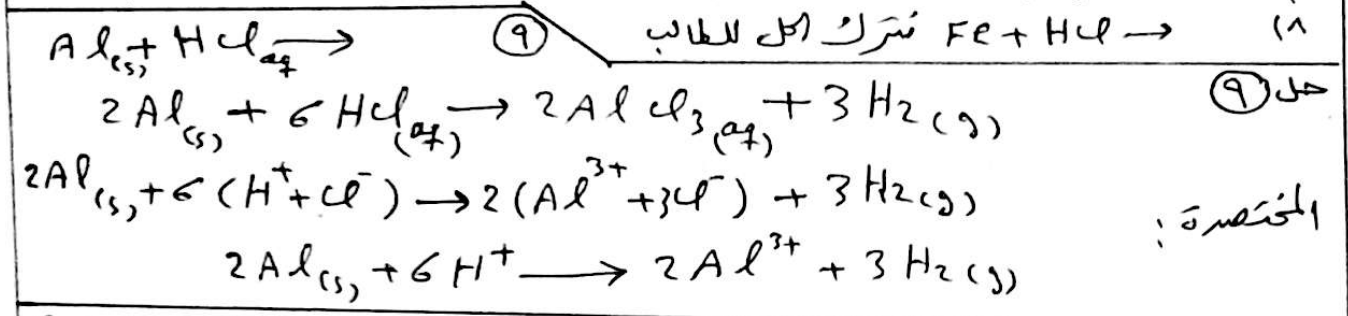 ١٨) Fe + HCl → نترك الحل للطالب
⑨ Al(s) + HCl aq →
حل ⑨
2Al(s) + 6HCl(aq) → 2AlCl3(aq) + 3H2(g)
2Al(s) + 6(H⁺ + Cl⁻) → 2(Al³⁺ + 3Cl⁻) + 3H2(g)
المختصرة :
2Al(s) + 6H⁺ → 2Al³⁺ + 3H2(g)